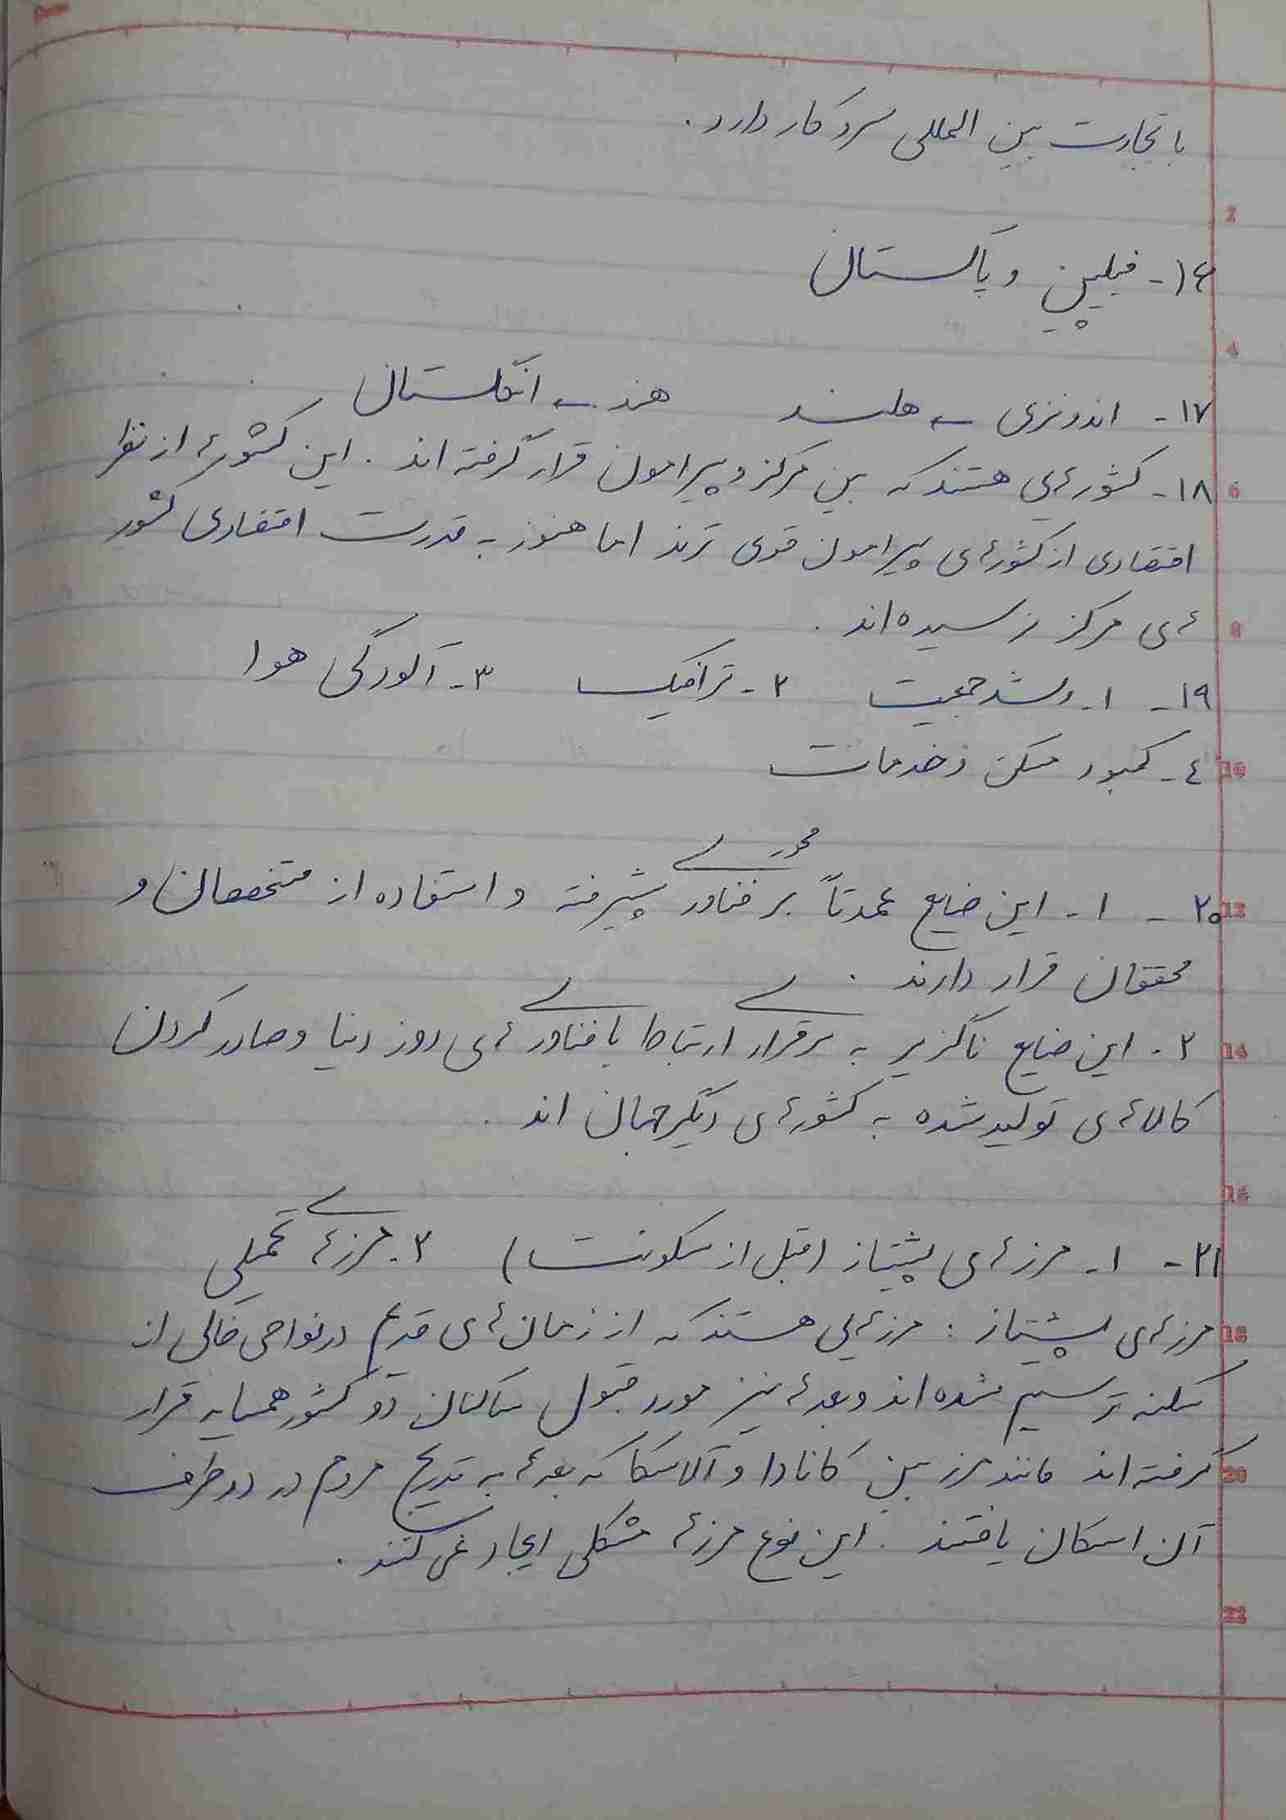 با تجارت بین المللی سرو کار دارد.
۱۶- فیلیپین و پاکستان
۱۷- اندونزی ← هلند هند ← انگلستان
۱۸- کشورهایی هستند که بین مرکز و پیرامون قرار گرفته اند. این کشورها از نظر
اقتصادی از کشورهای پیرامون قوی ترند اما هنوز به قدرت اقتصادی کشور
های مرکز نرسیده اند.
۱۹- ۱- رشد جمعیت ۲- ترافیک ۳- آلودگی هوا
۴- کمبود مسکن و خدمات
۲۰- ۱- این صنایع عمدتاً بر محور فناوری پیشرفته و استفاده از متخصصان و
محققان قرار دارند.
۲- این صنایع ناگزیر به برقراری ارتباط با فناوری های روز دنیا و صادر کردن
کالاهای تولید شده به کشورهای دیگر جهان اند.
۲۱- ۱- مرزهای پیشتاز (قبل از سکونت) ۲- مرزهای تحمیلی
مرزهای پیشتاز: مرزهایی هستند که از زمان های قدیم در نواحی خالی از
سکنه ترسیم شده اند و بعدها نیز مورد قبول ساکنان دو کشور همسایه قرار
گرفته اند مانند مرز بین کانادا و آلاسکا که بعدها به تدریج مردم در دو طرف
آن اسکان یافتند. این نوع مرزها مشکلی ایجاد نمی کنند.